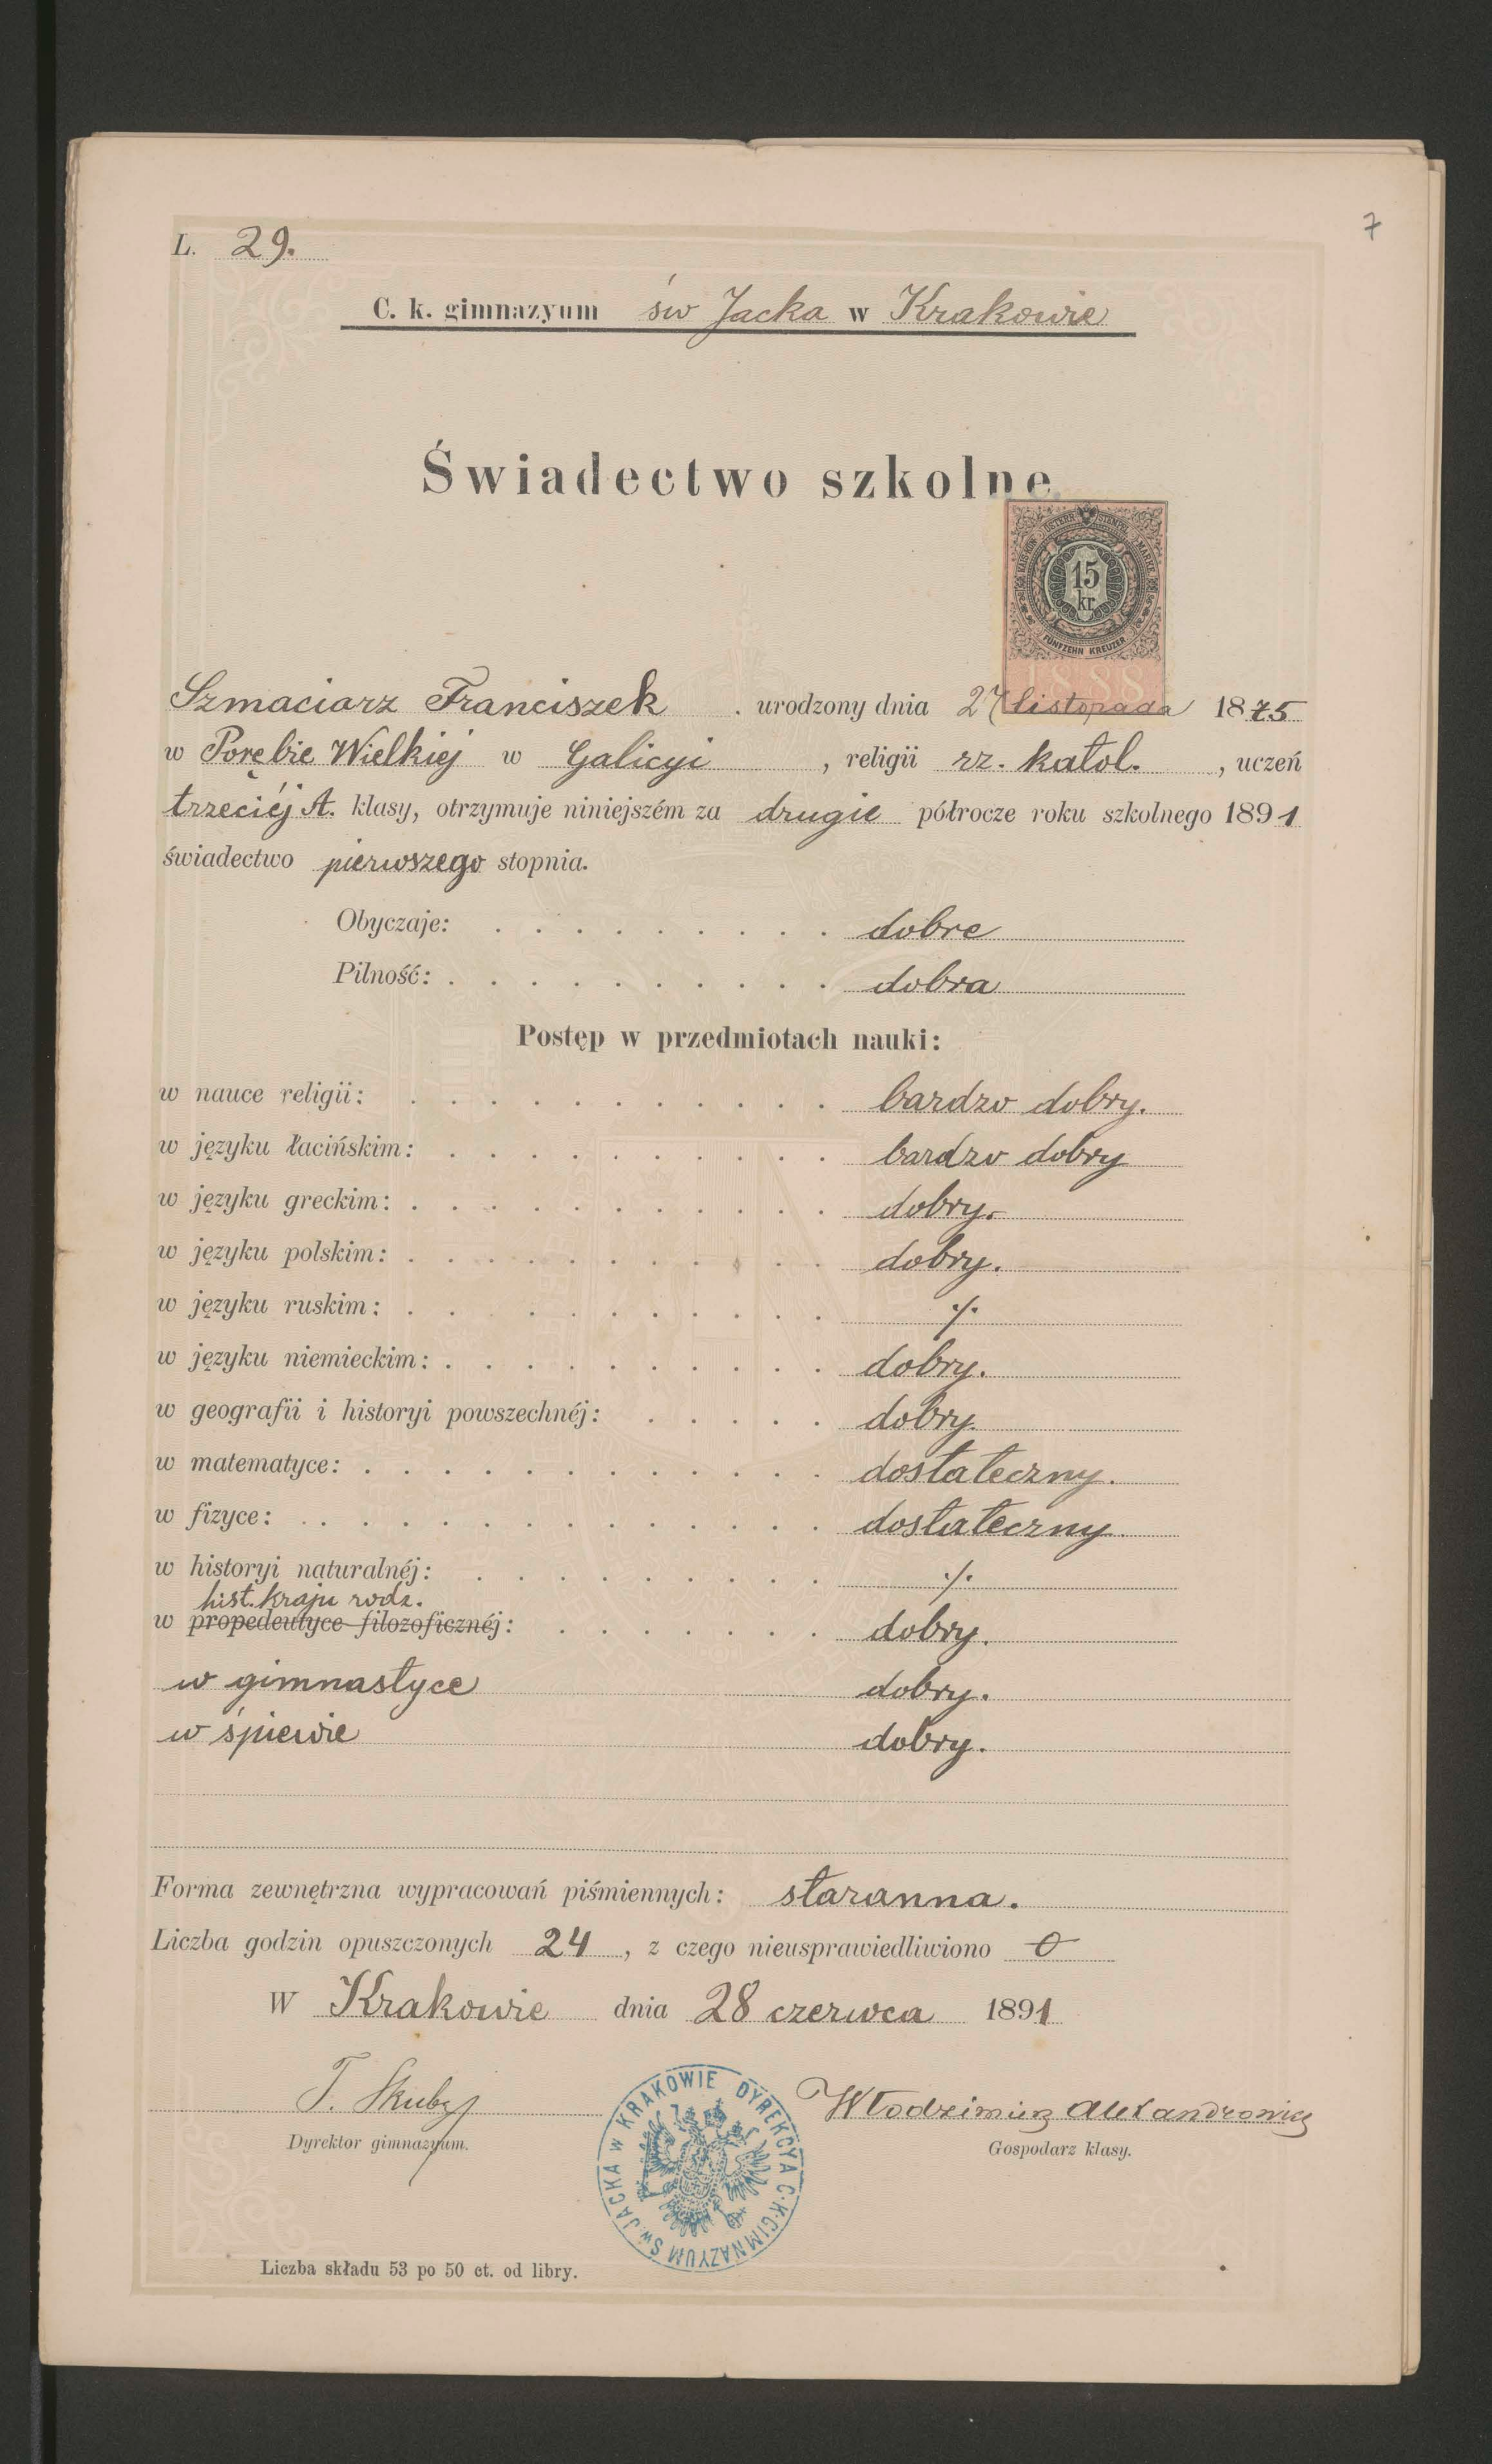 7
L. 29.
C. k. gimnazyum św Jacka w Krakowie
Świadectwo szkolne
KAIS. KÖN. ÖSTERR. STEMPEL MARKE
15
kr.
FÜNFZEHN KREUZER
1888
Szmaciarz Franciszek . urodzony dnia 27 listopada 1875
w Porębie Wielkiej w Galicyi , religii rz. katol. , uczeń
trzeciéj A. klasy, otrzymuje niniejszém za drugie półrocze roku szkolnego 1891
świadectwo pierwszego stopnia.
Obyczaje: . . . . . . . . . dobre
Pilność: . . . . . . . . . . dobra
Postęp w przedmiotach nauki:
w nauce religii: . . . . . . . . . . . bardzo dobry.
w języku łacińskim: . . . . . . . . . . bardzo dobry
w języku greckim: . . . . . . . . . . . dobry.
w języku polskim: . . . . . . . . . . . dobry.
w języku ruskim: . . . . . . . . . . . ·/·
w języku niemieckim: . . . . . . . . . . dobry.
w geografii i historyi powszechnéj: . . . . . dobry.
w matematyce: . . . . . . . . . . . . dostateczny.
w fizyce: . . . . . . . . . . . . . dostateczny.
w historyi naturalnéj: . . . . . . . . . ·/·
hist. kraju rodz.
w propedeutyce filozoficznéj: . . . . . . . dobry.
w gimnastyce dobry.
w śpiewie dobry.
Forma zewnętrzna wypracowań piśmiennych: staranna.
Liczba godzin opuszczonych 24 , z czego nieusprawiedliwiono 0
W Krakowie dnia 28 czerwca 1891
T. Skuby
Włodzimierz Aleksandrowicz
Dyrektor gimnazyum.
Gospodarz klasy.
DYREKCYA C. K. GIMNAZYUM ŚW. JACKA W KRAKOWIE
Liczba składu 53 po 50 ct. od libry.